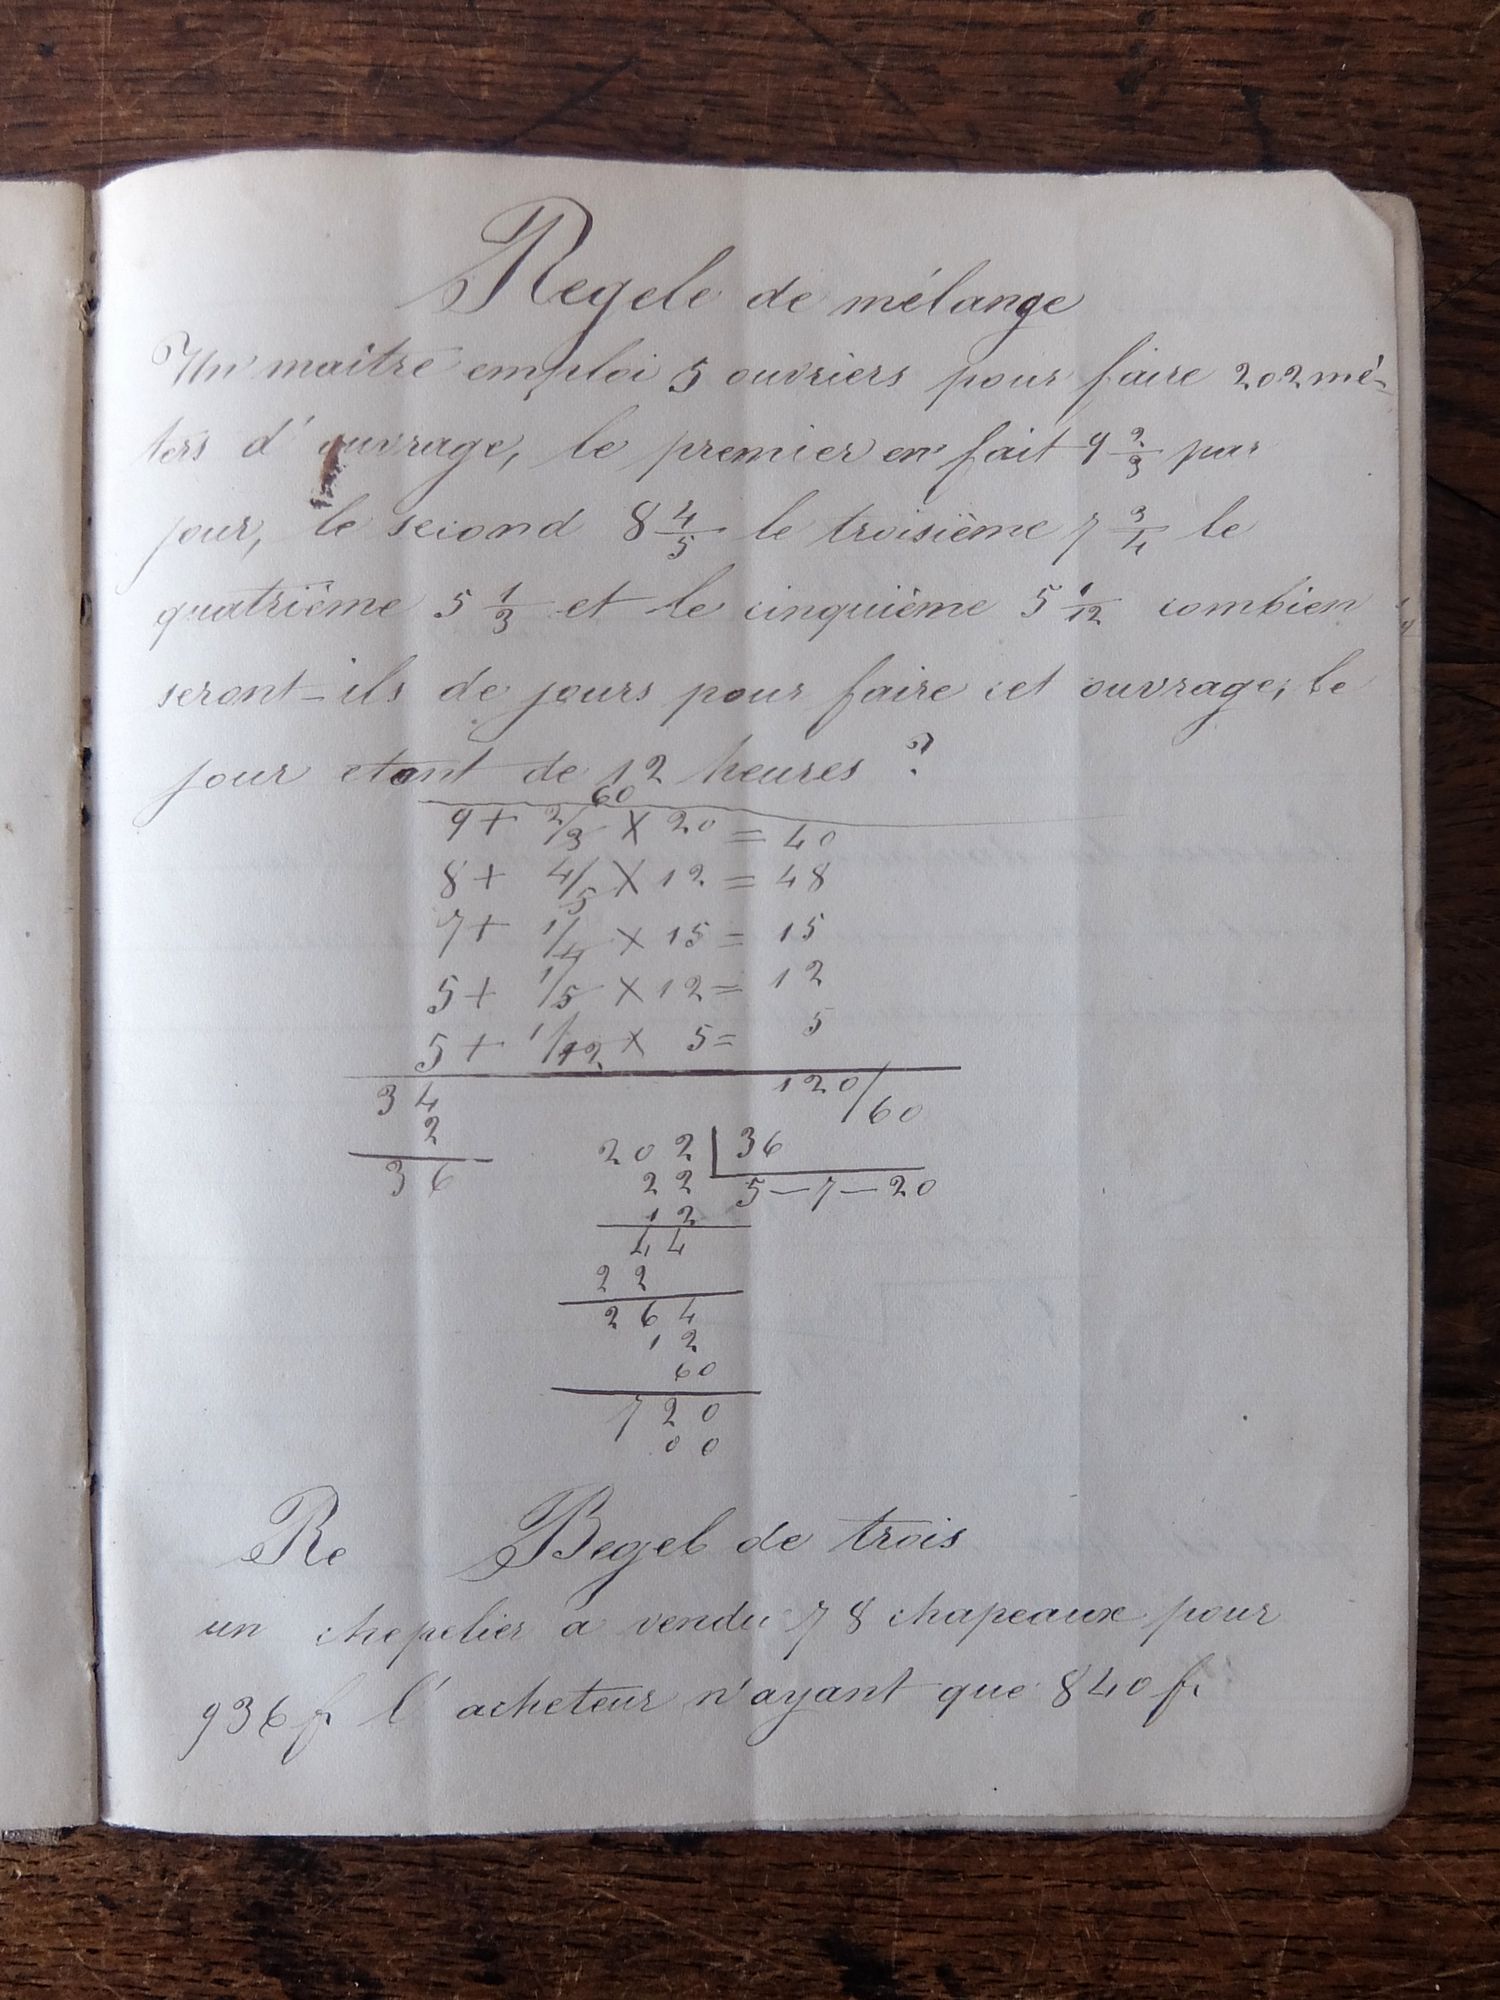 Regele de mélange
Un maitre emploi 5 ouvriers pour faire 202 mé-
ters d'ouvrage, le premier en fait 9 2/3 par
jour, le second 8 4/5 le troisième 7 3/4 le
quatrième 5 1/3 et le cinquième 5 1/12 combien
seront-ils de jours pour faire cet ouvrage, le
jour etant de 12 heures ?
60
9 + 2/3 X 20 = 40
8 + 4/5 X 12 = 48
7 + 1/4 X 15 = 15
5 + 1/5 X 12 = 12
5 + 1/12 X 5 = 5
34 120/60
2
36
202 36
22 5-7-20
12
44
22
264
12
60
720
00
Re Regel de trois
un chepelier a vendu 78 chapeaux pour
936 f l'acheteur n'ayant que 840 f